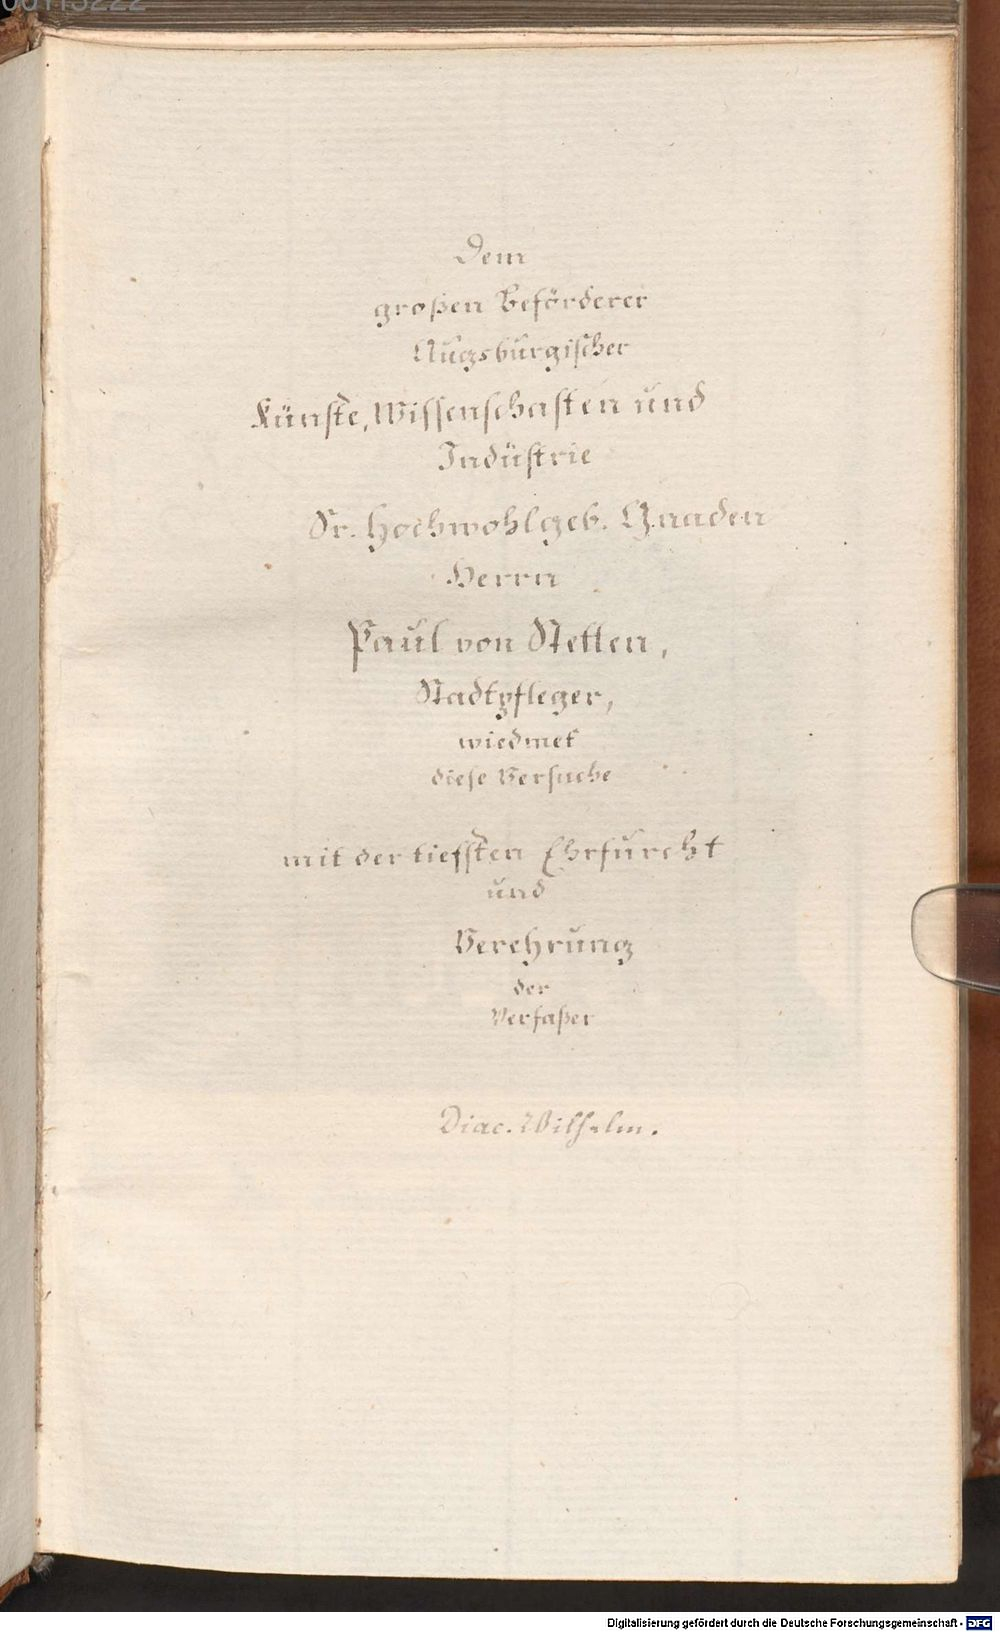 Dem
großen Beförderer
Augsburgischer
Künste, Wissenschaften und
Industrie
Sr. Hochwohlgeb. Gnaden
Herrn
Paul von Stetten,
Stadtpfleger,
wiedmet
diese Versuche
mit der tiefsten Ehrfurcht
und
Verehrung
der
Verfaßer
Diac. Wilhelm.
Digitalisierung gefördert durch die Deutsche Forschungsgemeinschaft - DFG